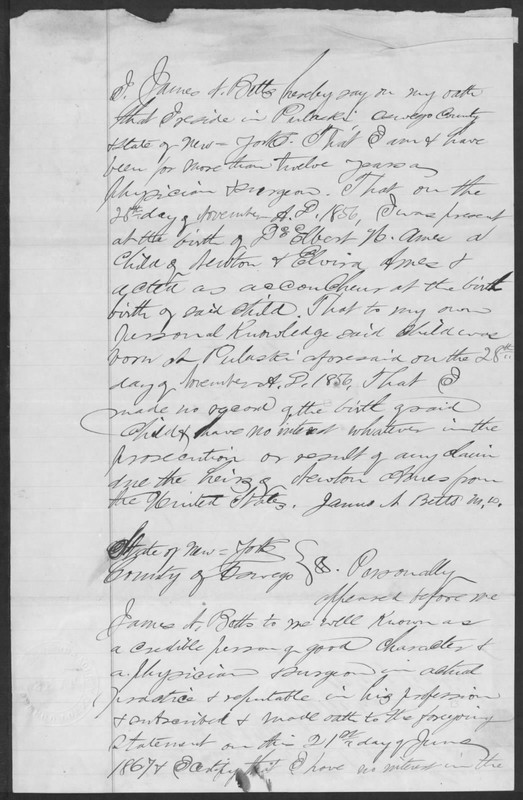 I, James N. Betts hereby say on my oath
that I reside in Pulaski Oswego County
& State of New = York. That I am & have
been for more than twelve years a
physician & surgeon. That on the
28th day of November A.D. 1856, I was present
at the birth of Elbert N. Ames a
child of Newton & Elvira Ames &
acted as accoucheur at the birth
birth of said child. That to my own
personal knowledge said child was
born at Pulaski aforesaid on the 28th
day of November A.D. 1856, That I
made no record of the birth of said
child & have no interest whatever in the
prosecution or result of any claim
due the heirs of Newton Ames from
the United States. James N. Betts M.D.
State of New = York
County of Oswego } SS. Personally
appeared before me
James N. Betts to me well known as
a credible person of good character &
a physician & surgeon in actual
practice & reputable in his profession
& subscribed & made oath to the foregoing
statement on this 21st day of June
1867 & I certify that I have no interest in the